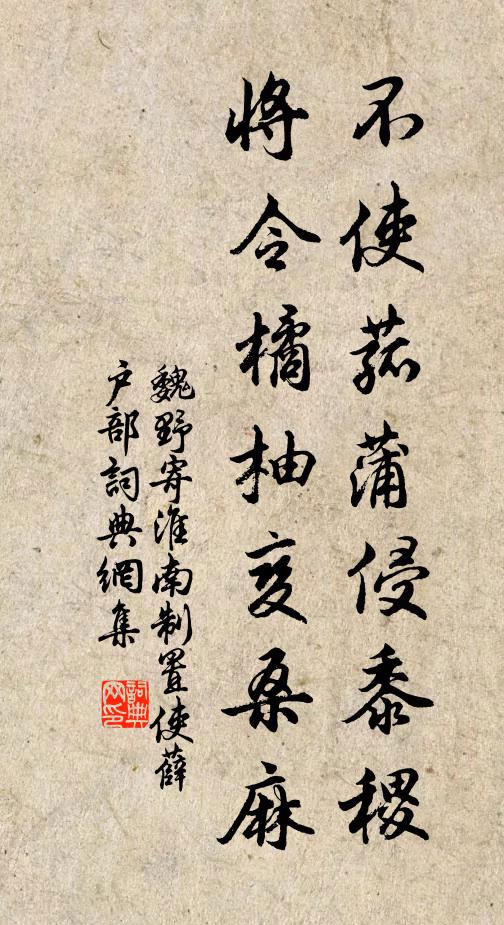 不使菰蒲侵黍稷
将令橘柚变桑麻
魏野寄淮南制置使薛
户部詞典網集
詞典网印